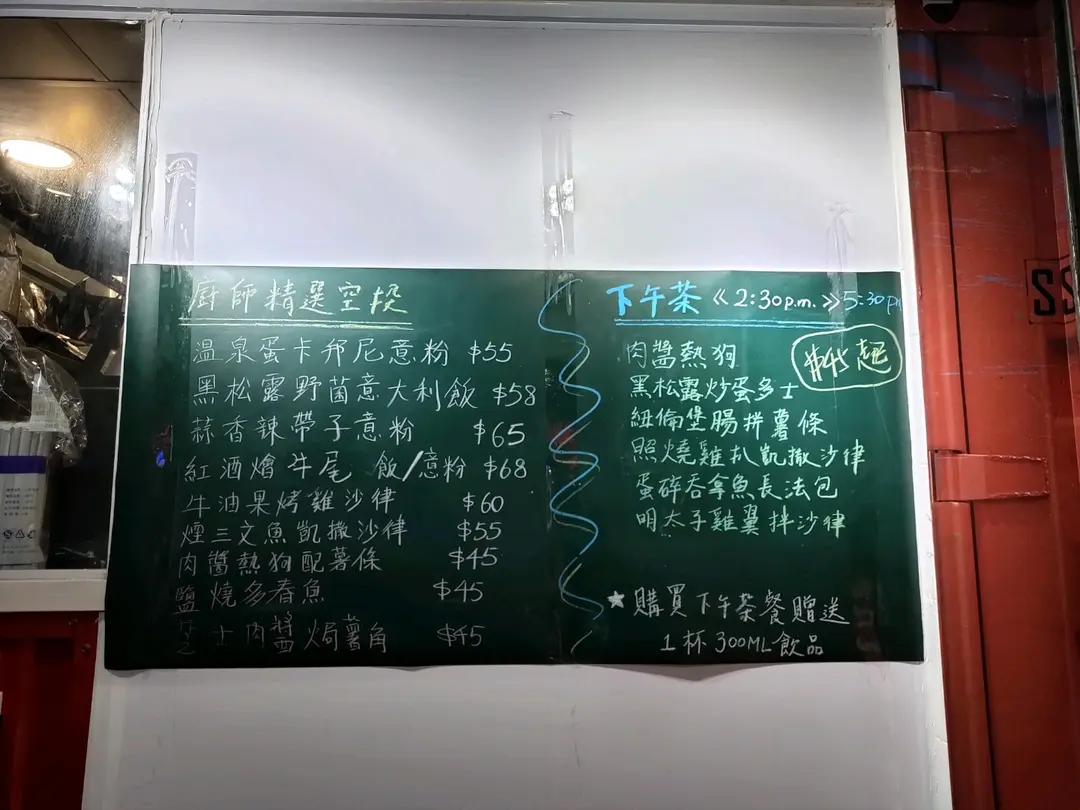 廚師精選空段
溫泉蛋卡邦尼意粉 $55
黑松露野菌意大利飯 $58
蒜香辣帶子意粉 $65
紅酒燴牛尾 飯/意粉 $68
牛油果烤雞沙律 $60
煙三文魚凱撒沙律 $55
肉醬熱狗配薯條 $45
鹽燒多春魚 $45
芝士肉醬焗薯角 $45
下午茶 《2:30p.m.》5:30p
$45起
肉醬熱狗
黑松露炒蛋多士
紐倫堡腸拼薯條
照燒雞扒凱撒沙律
蛋碎吞拿魚長法包
明太子雞翼拌沙律
★購買下午茶餐贈送
1杯300ML飲品
SS